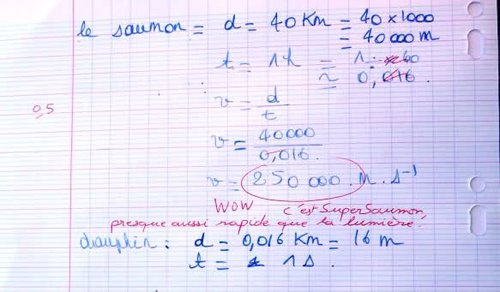 le saumon = d = 40 Km = 40 x 1000
= 40 000 m
t = 1h = 1 : 60
≈ 0,016.
0,5
v = d
t
v = 40000
0,016.
v = 250 000. m. s-1
WOW c'est SuperSaumon,
presque aussi rapide que la lumière.
dauphin : d = 0,016 Km = 16 m
t = 1 s.